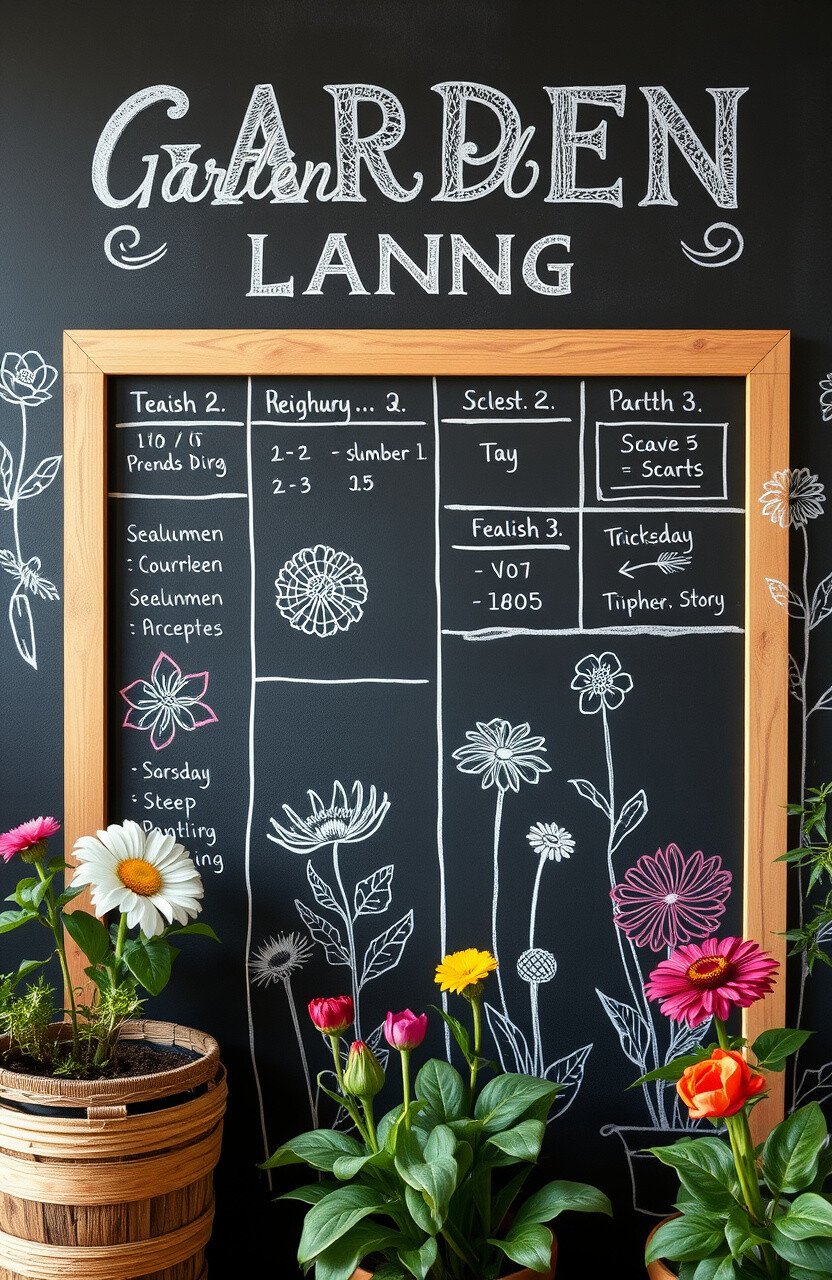 GARDEN
Garden
LANNG
Teaish 2.
110 / 15
Prends Dirg
Sealunmen
: Courrleen
Seelunmen
: Arceptes
- Sorsday
- Steep
Reighury... 2.
2-2 - slumber 1
2-3 15
Sclest. 2.
Tay
Partth 3.
Scave 5
= Scarts
Fealish 3.
- V07
- 1805
Tricksday
Tipher. Story